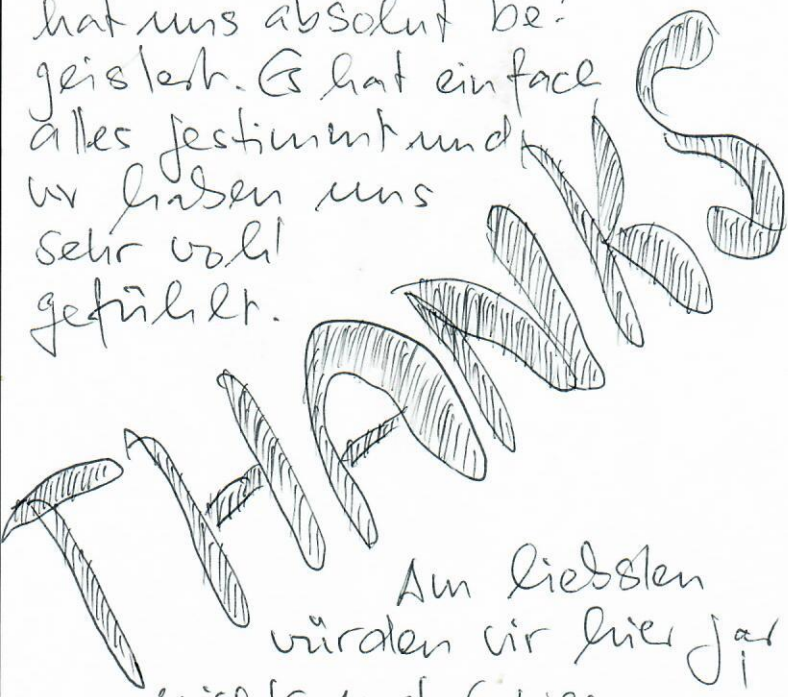 hat uns absolut be-
geistert. Es hat einfach
alles gestimmt und
wir haben uns
sehr wohl
gefühlt.
THANKS
Am liebsten
würden wir hier gar